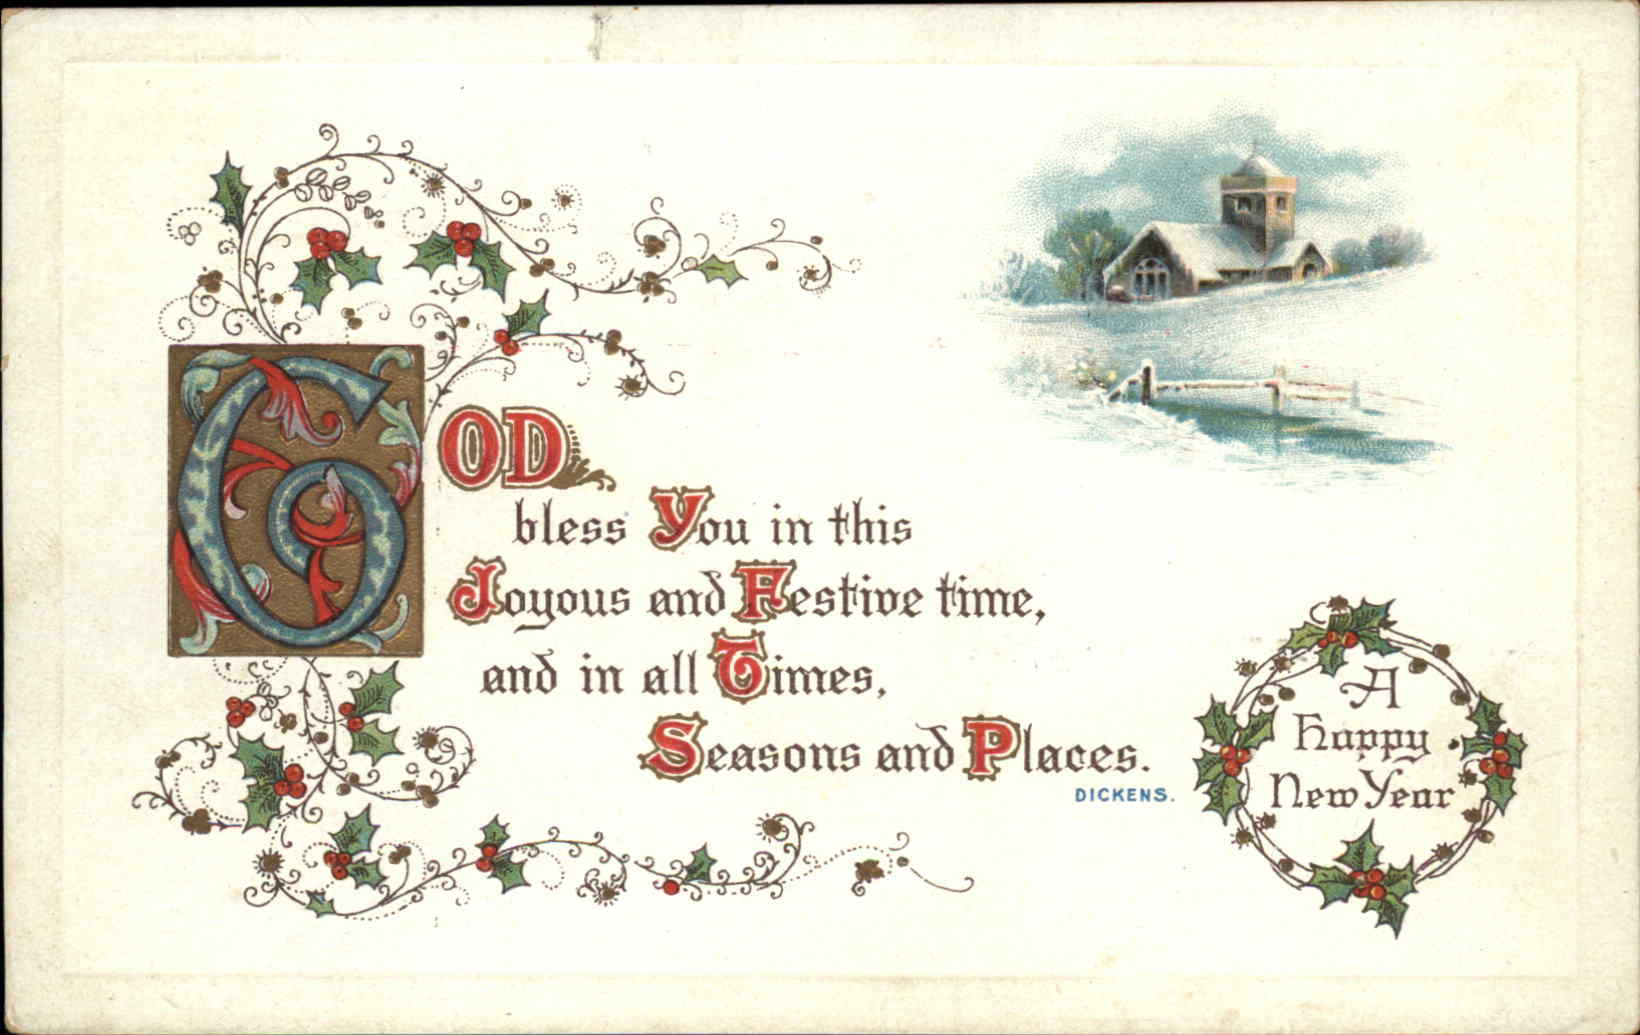 GOD
bless You in this
Joyous and Festive time,
and in all Times,
Seasons and Places.
DICKENS.
A
Happy
New Year